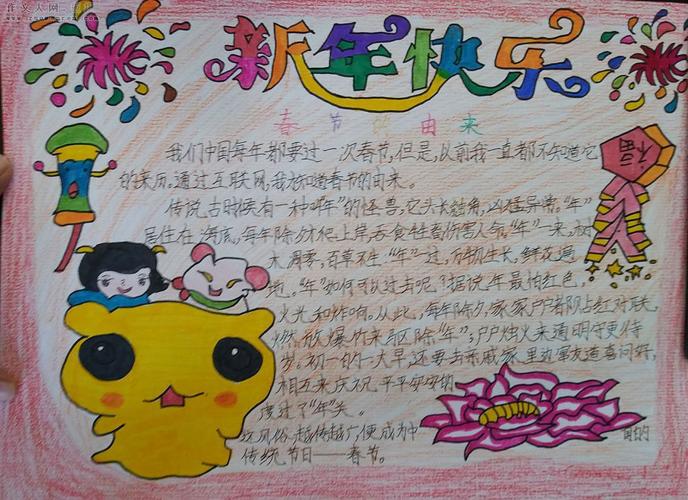 作文人网
新年快乐
春节的由来
我们中国每年都要过一次春节,但是,以前我一直都不知道它
的来历。通过互联网,我才知道春节的由来。
传说,古时候有一种叫"年"的怪兽,它头长触角,凶猛异常。"年"
居住在海底,每年除夕才爬上岸,吞食牲畜伤害人命。"年"一来,树
木凋零,百草不生,"年"一过,万物生长,鲜花遍
地。"年"如何可以过去呢?据说,年最怕红色,
火光和炸响。从此,每年除夕,家家户户都贴红对联,
燃放爆竹来驱除"年";户户烛火通明守更待
岁。初一的一大早,还要去亲戚家里边朋友道喜问好,
相互来庆祝平平安安的
度过了"年"关。
这风俗越传越广,便成为中国的
传统节日——春节。
福